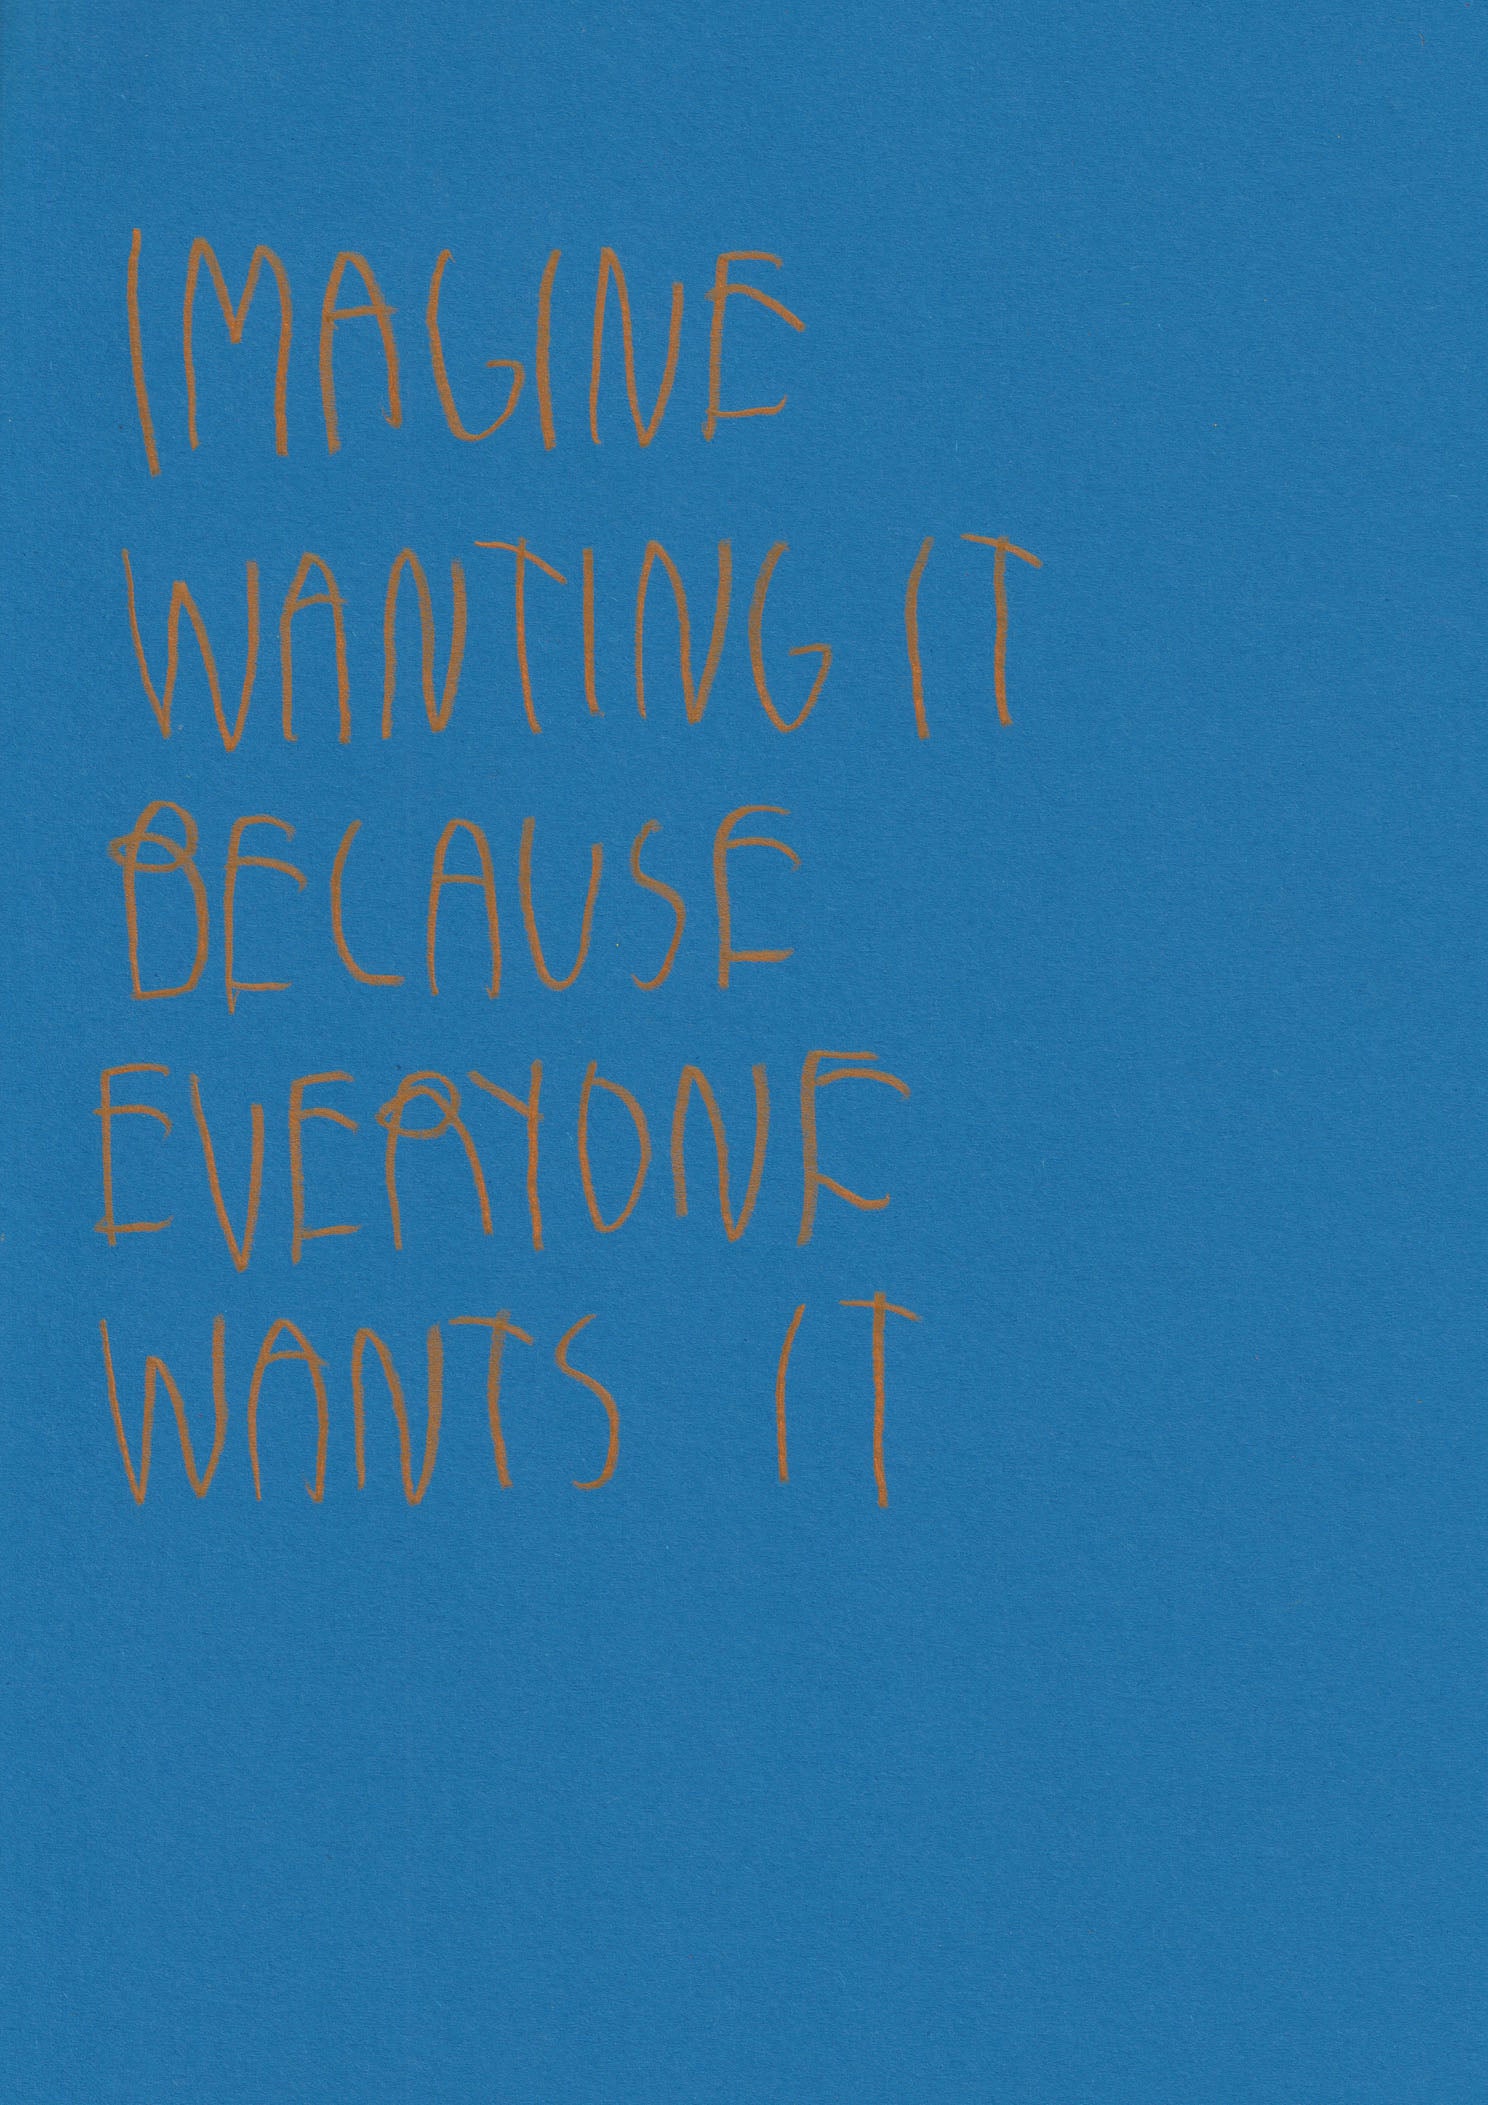 IMAGINE
WANTING IT
BECAUSE
EVERYONE
WANTS IT